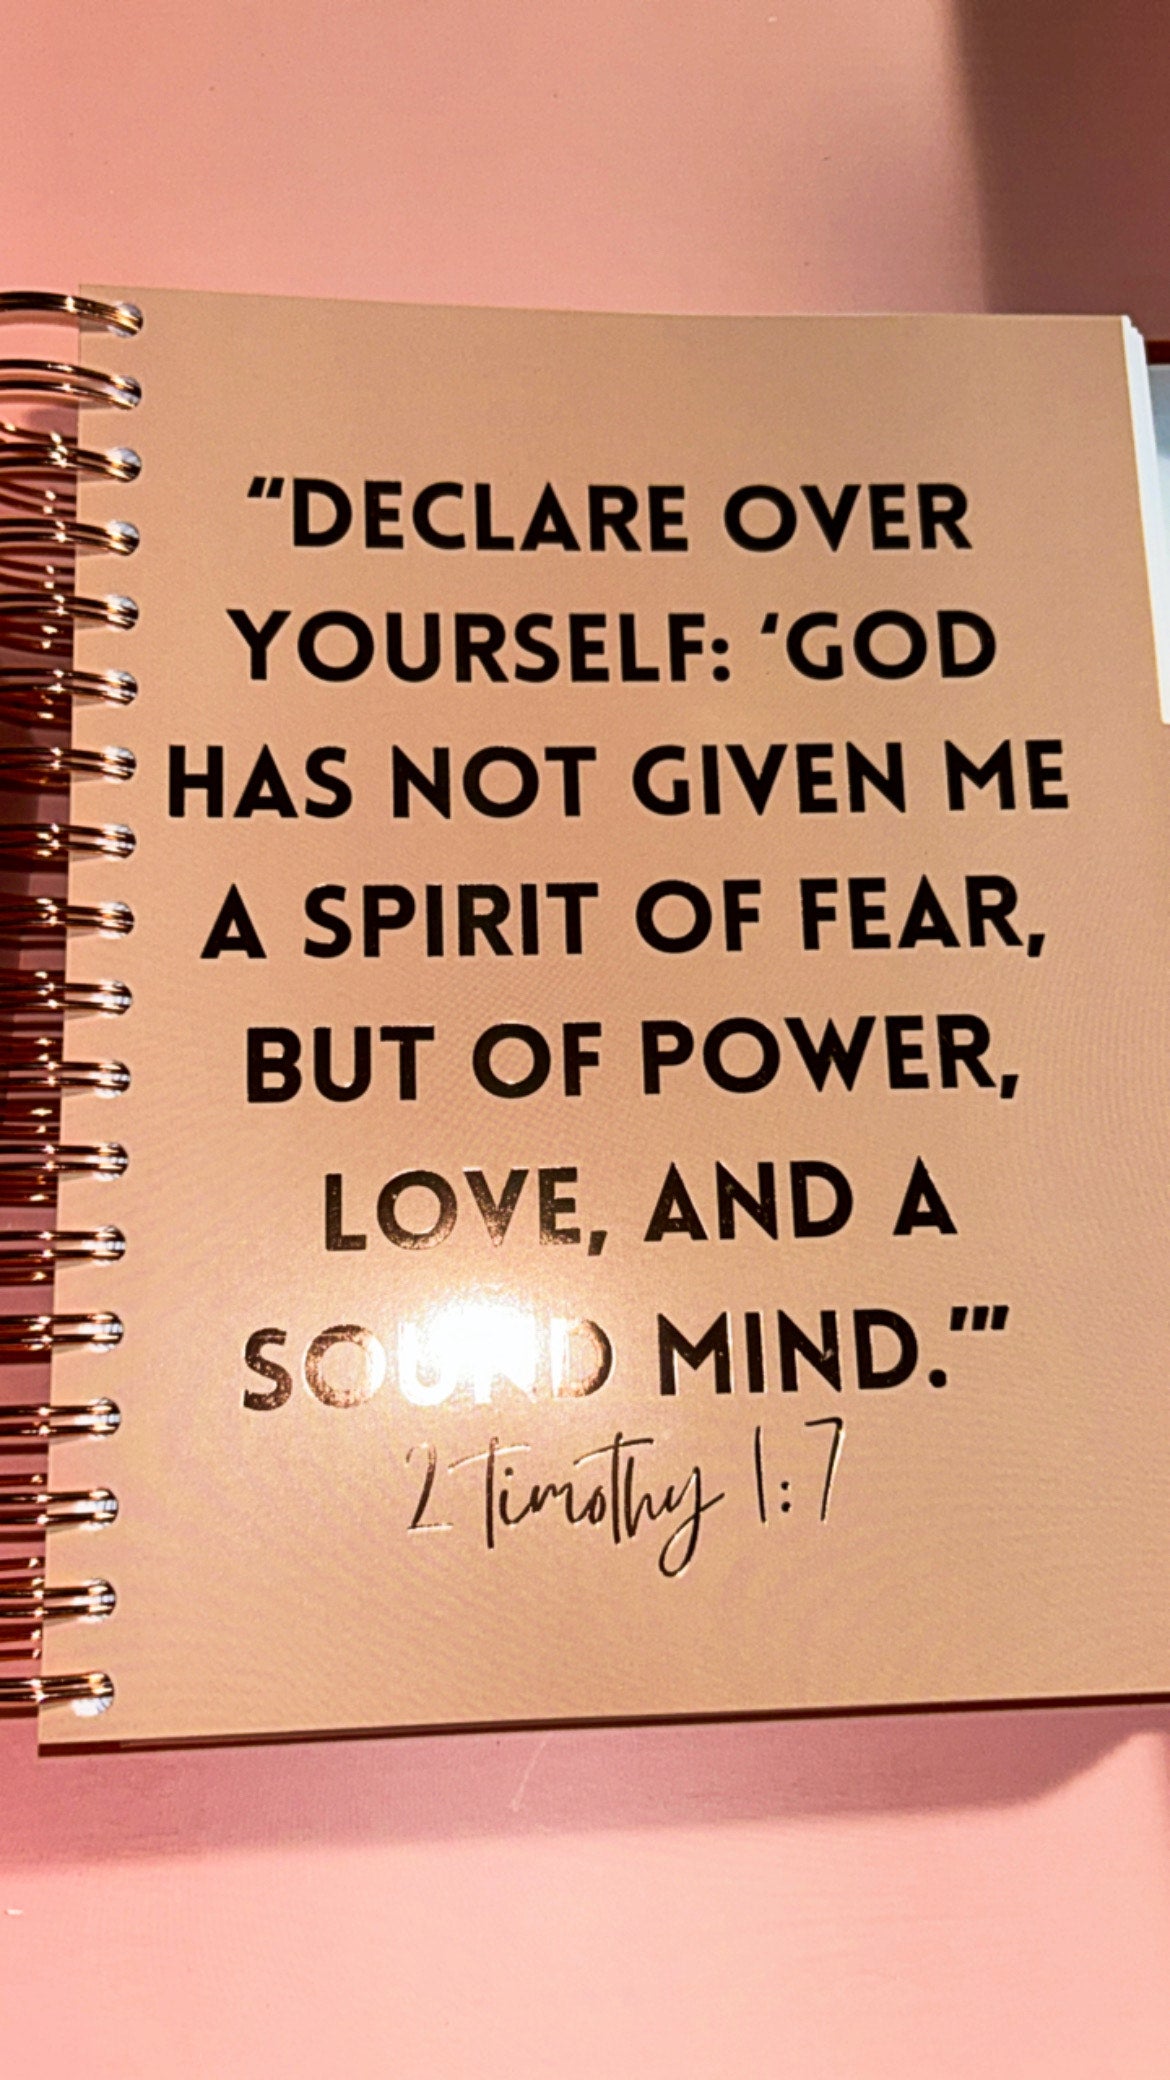 “DECLARE OVER
YOURSELF: ‘GOD
HAS NOT GIVEN ME
A SPIRIT OF FEAR,
BUT OF POWER,
LOVE, AND A
SOUND MIND.’”
2 Timothy 1:7